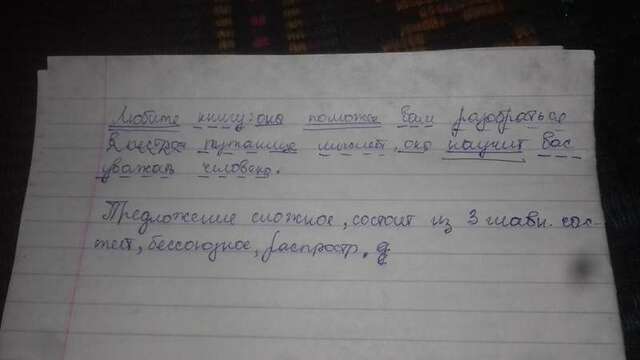 Любите книгу: она поможет Вам разобраться
в пестрой путанице мыслей, она научит Вас
уважать человека.
Предложение сложное, состоит из 3 главн. час-
тей, бессоюзное, распростр.